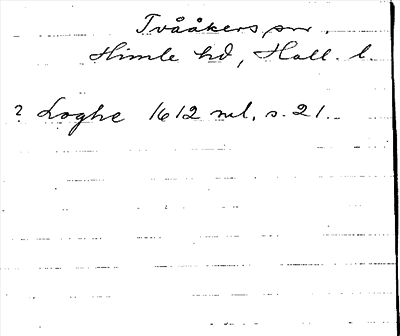 Tvååkers sn.
Himle hd, Hall. l.
? Loghe 1612 ml, s. 21.